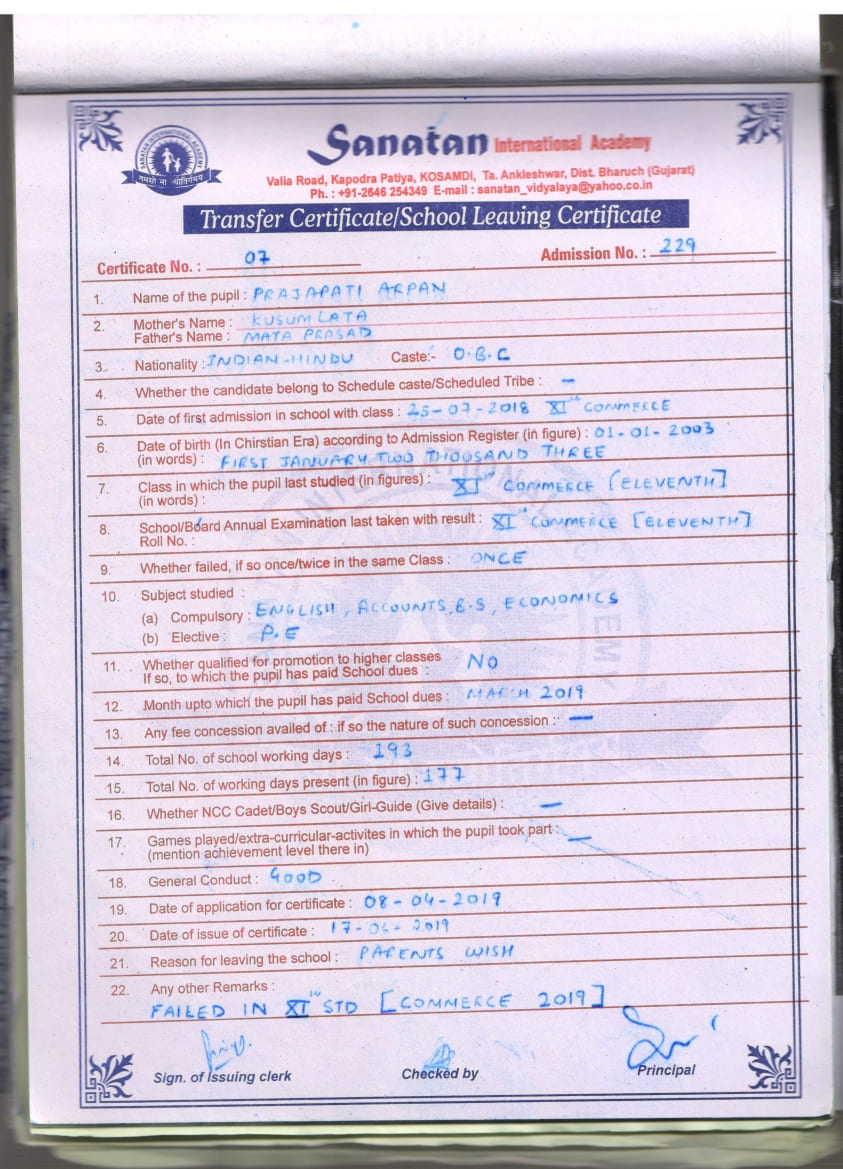 SANATAN INTERNATIONAL ACADEMY
तमसो मा ज्योतिर्गमय
Sanatan International Academy
Valia Road, Kapodra Patiya, KOSAMDI, Ta. Ankleshwar, Dist. Bharuch (Gujarat)
Ph. : +91-2646 254349 E-mail : sanatan_vidyalaya@yahoo.co.in
Transfer Certificate/School Leaving Certificate
Certificate No. : 07 Admission No. : 229
1. Name of the pupil : PRAJAPATI ARPAN
2. Mother's Name : KUSUM LATA
Father's Name : MATA PRASAD
3. Nationality : INDIAN-HINDU Caste:- O.B.C
4. Whether the candidate belong to Schedule caste/Scheduled Tribe : –
5. Date of first admission in school with class : 25-07-2018 XIth COMMERCE
6. Date of birth (In Chirstian Era) according to Admission Register (in figure) : 01-01-2003
(in words) : FIRST JANUARY TWO THOUSAND THREE
7. Class in which the pupil last studied (in figures) : XIth COMMERCE [ELEVENTH]
(in words) :
8. School/Board Annual Examination last taken with result : XIth COMMERCE [ELEVENTH]
Roll No. :
9. Whether failed, if so once/twice in the same Class : ONCE
10. Subject studied :
(a) Compulsory : ENGLISH, ACCOUNTS, B.S, ECONOMICS
(b) Elective : P.E
11. Whether qualified for promotion to higher classes NO
If so, to which the pupil has paid School dues :
12. Month upto which the pupil has paid School dues : MARCH 2019
13. Any fee concession availed of : if so the nature of such concession : –
14. Total No. of school working days : 193
15. Total No. of working days present (in figure) : 177
16. Whether NCC Cadet/Boys Scout/Girl-Guide (Give details) : –
17. Games played/extra-curricular-activites in which the pupil took part : –
(mention achievement level there in)
18. General Conduct : GOOD
19. Date of application for certificate : 08-04-2019
20. Date of issue of certificate : 17-04-2019
21. Reason for leaving the school : PARENTS WISH
22. Any other Remarks :
FAILED IN XIth STD [COMMERCE 2019]
Sign. of Issuing clerk Checked by Principal